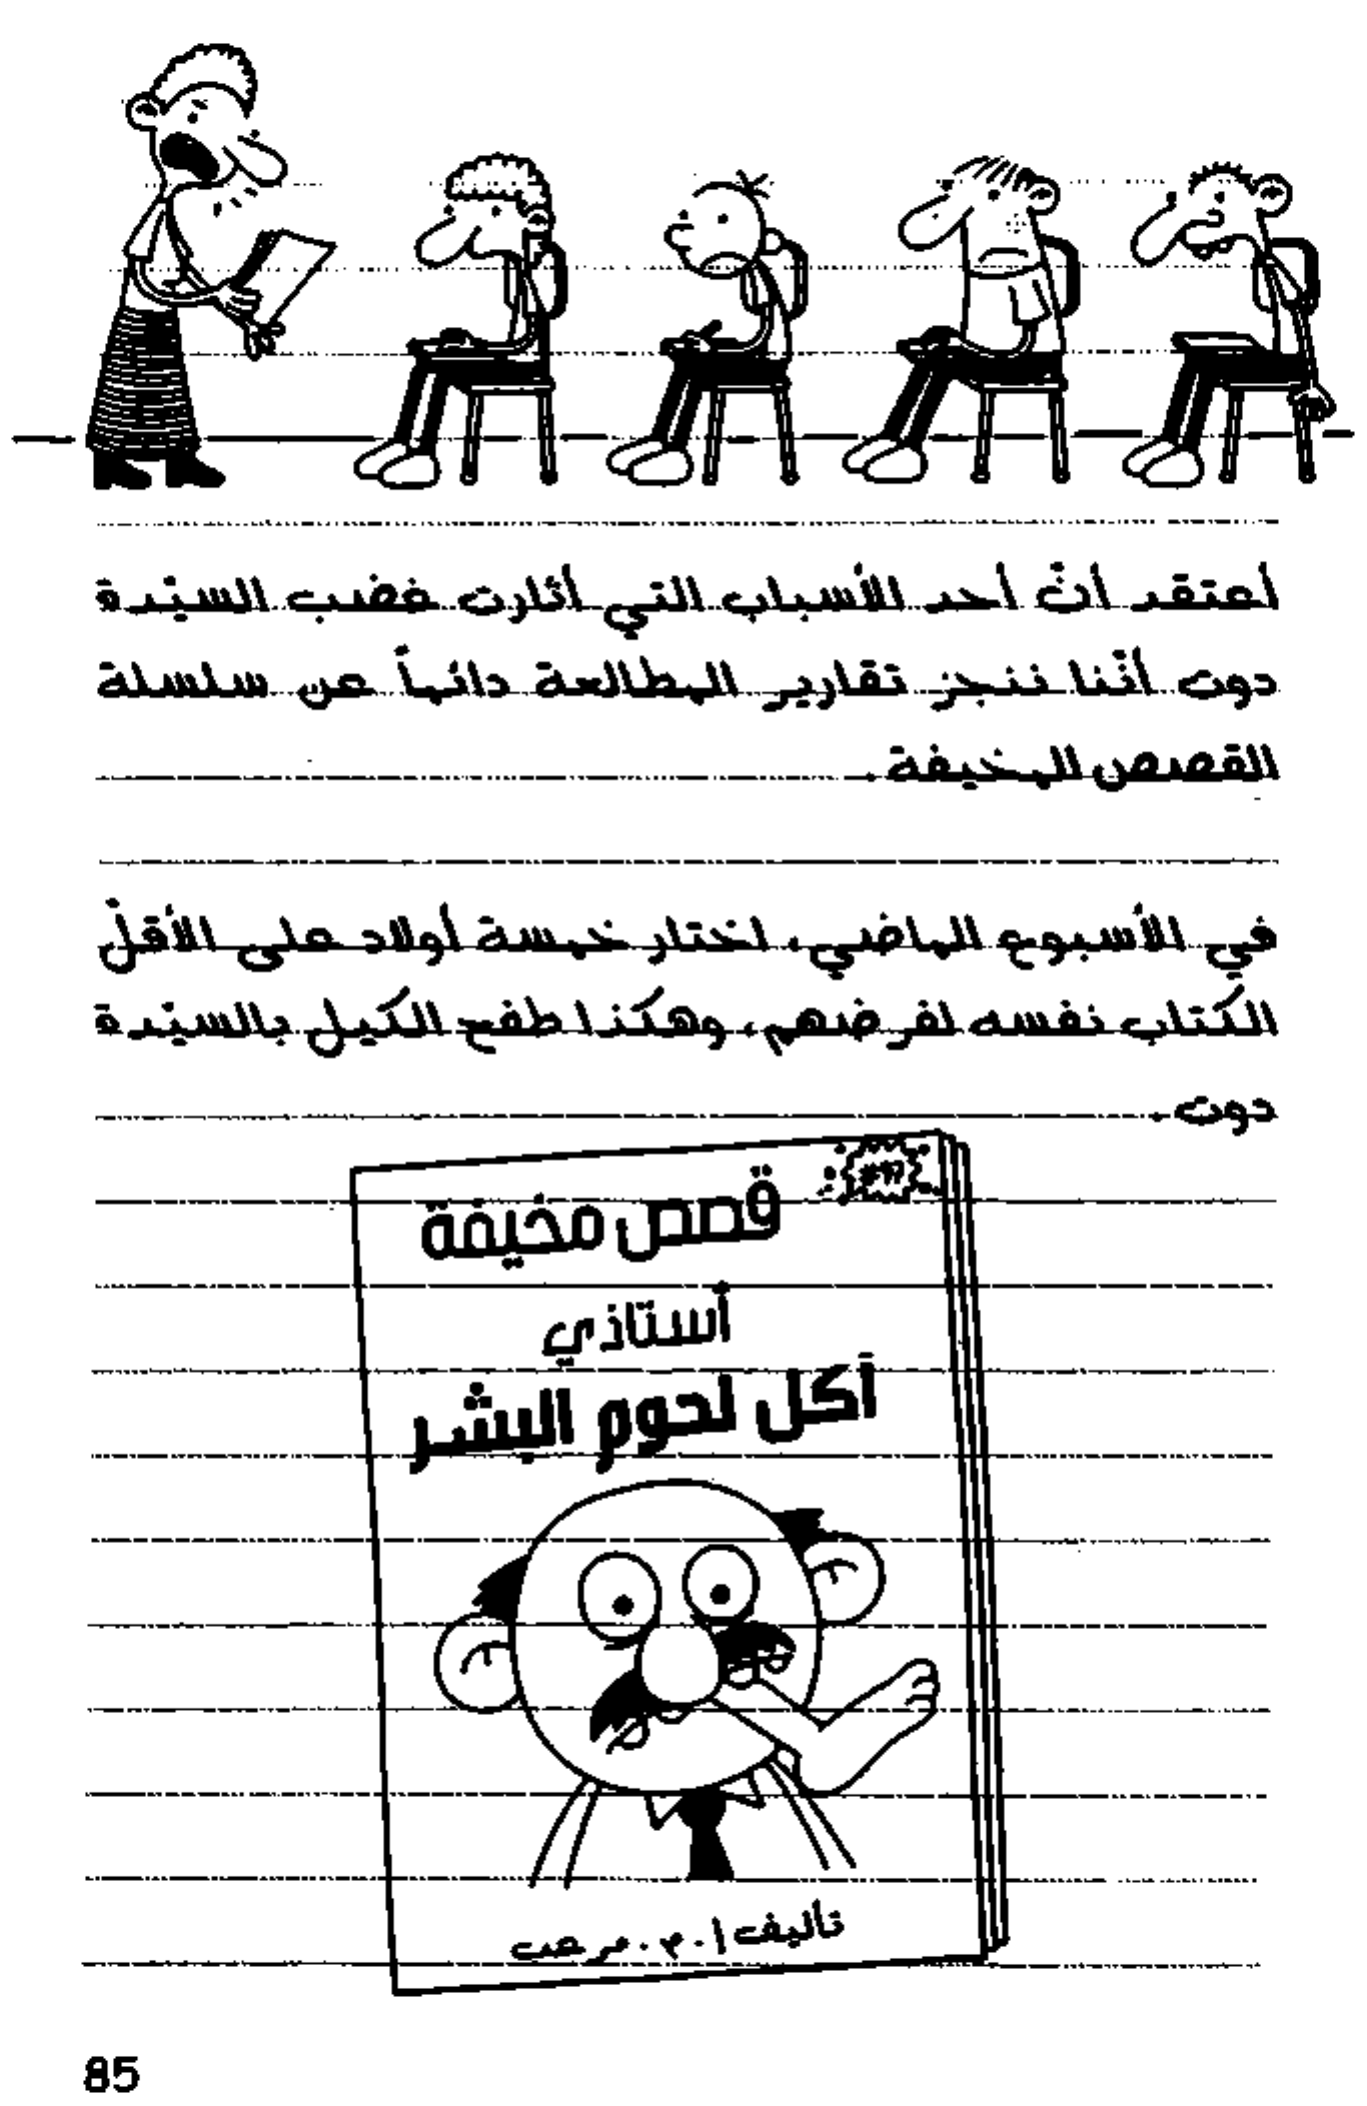 أعتقد أنّ أحد الأسباب التي أثارت غضب السيّدة
دون أنّنا ننجز تقارير المطالعة دائماً عن سلسلة
القصص المخيفة.
في الأسبوع الماضي، اختار خمسة أولاد على الأقلّ
الكتاب نفسه لفرضهم، وهكذا طفح الكيل بالسيّدة
دون.
قصص مخيفة
أستاذي
آكل لحوم البشر
تأليف أ.م. مرعب
85